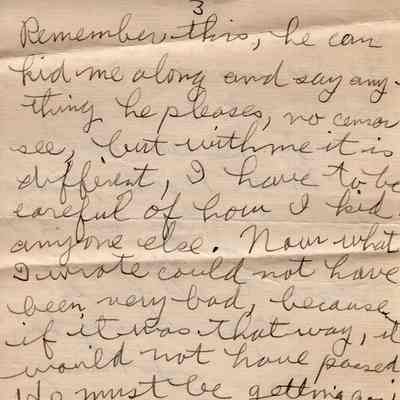 3
Remember this, he can
kid me along and say any-
thing he pleases, no censor
see, but with me it is
different, I have to be
careful of how I kid
anyone else. Now what
I wrote could not have
been very bad, because
if it was that way, it
would not have passed
He must be getting